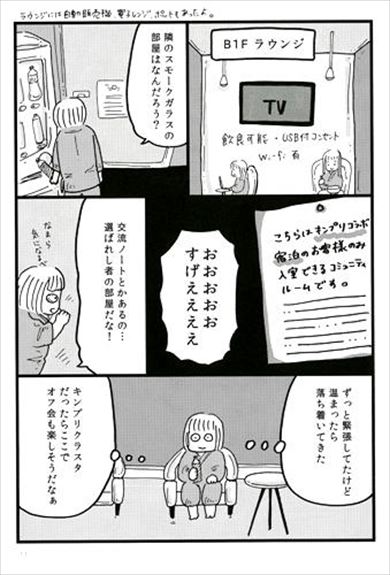 ラウンジには自動販売機 電子レンジ ポットもあったよ。
B1F ラウンジ
TV
飲食可能・USB付コンセント
Wi-Fi 有
隣のスモークガラスの
部屋はなんだろう？
こちらはキンプリコラボ
宿泊のお客様のみ
入室できるコミュニティ
ルームです。
おおおおお
すげえええ
交流ノートとかあるの…
選ばれし者の部屋だな！
なまら
気になるべ
ずっと緊張してたけど
温まったら
落ち着いてきた
キンプリクラスタ
だったらここで
オフ会も楽しそうだなぁ